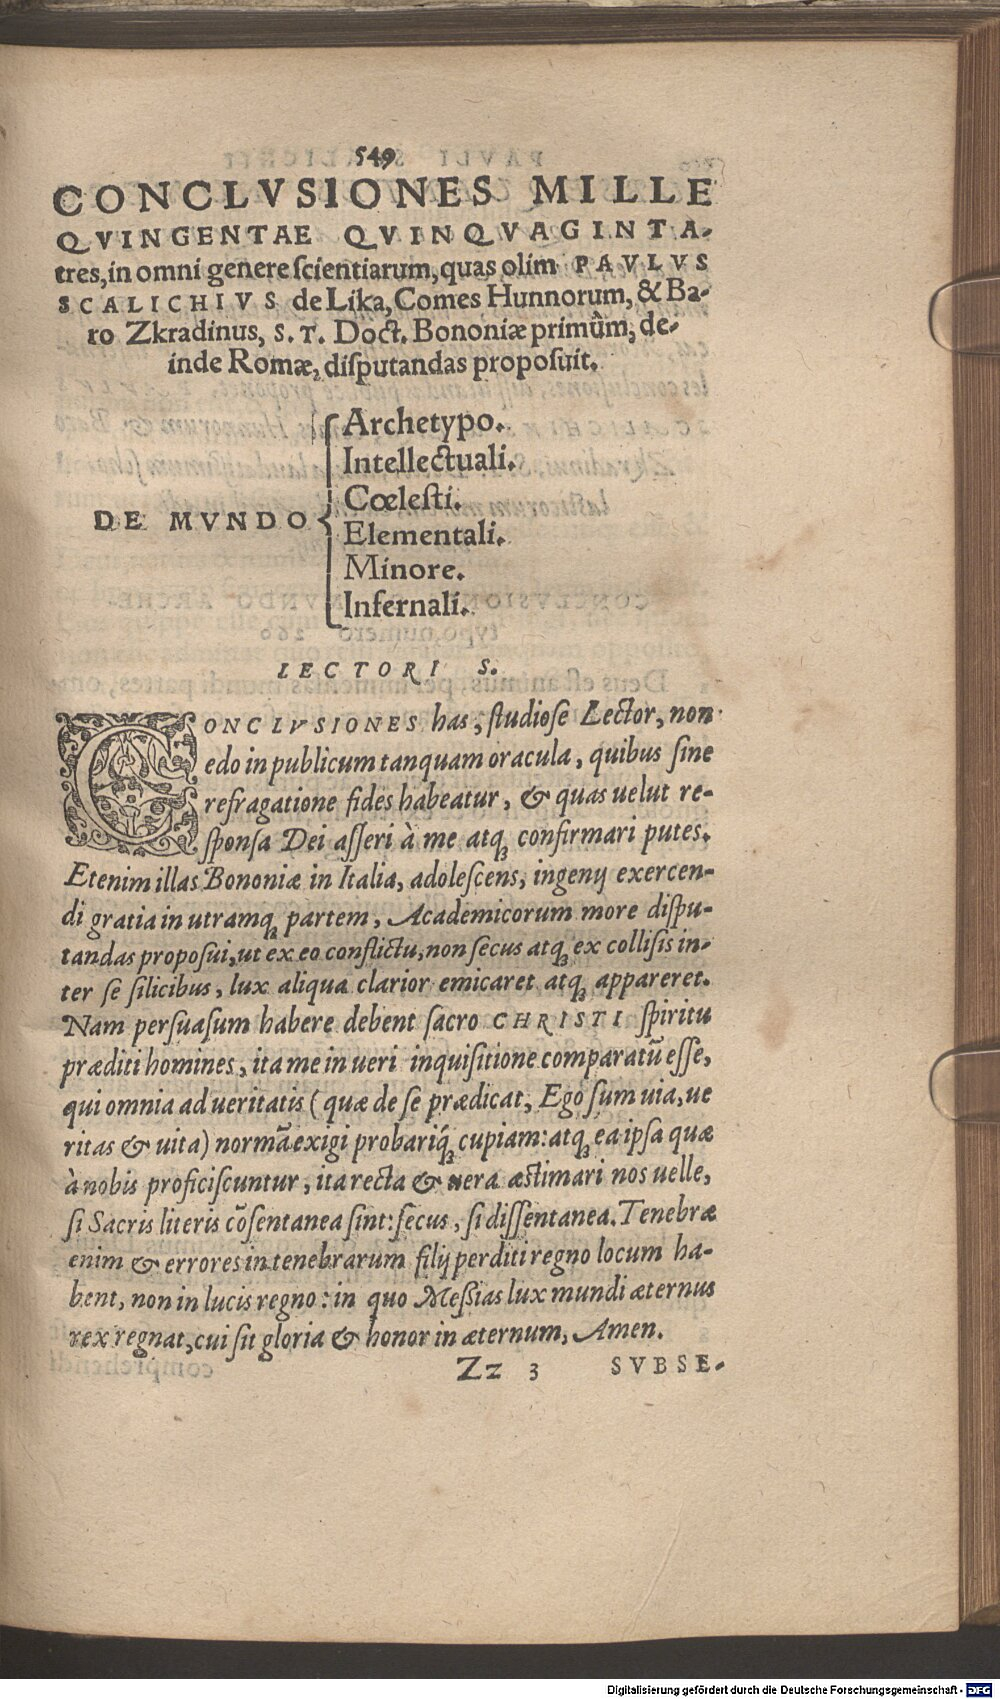 549
CONCLVSIONES MILLE
QVINGENTAE QVINQVAGINTA-
tres, in omni genere scientiarum, quas olim PAVLVS
SCALICHIVS de Lika, Comes Hunnorum, & Ba-
ro Zkradinus, S. T. Doct. Bononiæ primùm, de-
inde Romæ, disputandas proposuit.
DE MVNDO
Archetypo.
Intellectuali.
Cœlesti.
Elementali.
Minore.
Infernali.
LECTORI S.
CONCLVSIONES has, studiose Lector, non
edo in publicum tanquam oracula, quibus sine
refragatione fides habeatur, & quas uelut re-
sponsa Dei asseri à me atq; confirmari putes.
Etenim illas Bononiæ in Italia, adolescens, ingenij exercen-
di gratia in utramq; partem, Academicorum more dispu-
tandas proposui, ut ex eo conflictu, non secus atq; ex collisis in-
ter se silicibus, lux aliqua clarior emicaret atq; appareret.
Nam persuasum habere debent sacro CHRISTI spiritu
præditi homines, ita me in ueri inquisitione comparatū esse,
qui omnia ad ueritatis (quæ de se prædicat, Ego sum uia, ue
ritas & uita) normā exigi probariq́; cupiam: atq; ea ipsa quæ
à nobis proficiscuntur, ita recta & uera æstimari nos uelle,
si Sacris literis cōsentanea sint: secus, si dissentanea. Tenebræ
enim & errores in tenebrarum filij perditi regno locum ha-
bent, non in lucis regno: in quo Messias lux mundi æternus
rex regnat, cui sit gloria & honor in æternum, Amen.
Zz 3 SVBSE-
Digitalisierung gefördert durch die Deutsche Forschungsgemeinschaft - DFG